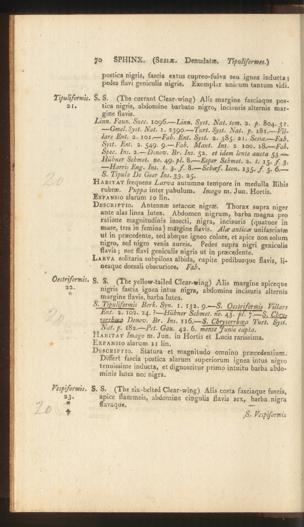 70 SPHINX. (Sesiæ. Denudatæ. Tipuliformes.)
postica nigris, fascia extus cupreo-fulva seu ignea inducta;
pedes flavi geniculis nigris. Exemplar unicum tantum vidi.
Tipuliformis. S. S. (The currant Clear-wing) Alis margine fasciaque pos-
21. tica nigris, abdomine barbato nigro, incisuris alternis mar-
gine flavis.
Linn. Faun. Suec. 1096.—Linn. Syst. Nat. tom. 2. p. 804. 32.
—Gmel. Syst. Nat. 1. 2390.—Turt. Syst. Nat. p. 181.—Vil-
lars Ent. 2. 101.—Fab. Ent. Syst. 2. 385. 21. Sesia.—Fab.
Syst. Ent. 2. 549. 9.—Fab. Mant. Ins. 2. 100. 18.—Fab.
Spec. Ins. 2.—Donov. Br. Ins. 52. et idem lente aucta 53.—
Hübner Schmet. nc. 49. pl. 8.—Esper Schmet. 2. t. 15. f. 3.
—Harris Eng. Ins. t. 3. f. 8.—Schæf. Icon. 135. f. 5. 6.—
S. Tipula De Geer Ins. 33. 25.
HABITAT frequens Larva autumno tempore in medulla Ribis
rubræ. Puppa inter pabulum. Imago m. Jun. Hortis.
EXPANSIO alarum 10 lin.
DESCRIPTIO. Antennæ setaceæ nigræ. Thorax supra niger
ante alas linea lutea. Abdomen nigrum, barba magna pro
ratione magnitudinis insecti, nigra, incisuris (quatuor in
mare, tres in femina) margine flavis. Alæ anticæ unifasciatæ
ut in præcedente, sed absque igneo colore, et apice non solum
nigro, sed nigro venis aureis. Pedes supra nigri geniculis
flavis; nec flavi geniculis nigris ut in præcedente.
LARVA solitaria subpilosa albida, capite pedibusque flavis, li-
neaque dorsali obscuriore. Fab.
Oestriformis. S. S. (The yellow-tailed Clear-wing) Alis margine apiceque
22. nigris fascia ignea intus nigra, abdomine incisuris alternis
margine flavis, barba lutea.
S. Tipuliformis Berk. Syn. 1. 132. 9.—S. Oestriformis Villars
Ent. 2. 102. 24. !—Hübner Schmet. nc. 43. pl. 7.—S. Chry-
sorrhœa Donov. Br. Ins. 116.—S. Chrysorrhœa Turt. Syst.
Nat. p. 182.—Pet. Gaz. 42. 6. mense Junio capta.
HABITAT Imago m. Jun. in Hortis et Lucis rarissima.
EXPANSIO alarum 11 lin.
DESCRIPTIO. Statura et magnitudo omnino præcedentium.
Differt fascia postica alarum superiorum ignea intus nigro
tenuissime inducta, et dignoscitur primo intuitu barba abdo-
minis lutea nec nigra.
Vespiformis. S. S. (The six-belted Clear-wing) Alis costa fasciaque fuscis,
23. apice flammeis, abdomine cingulis flavis sex, barba nigra
* flavaque.
20
S. Vespiformis